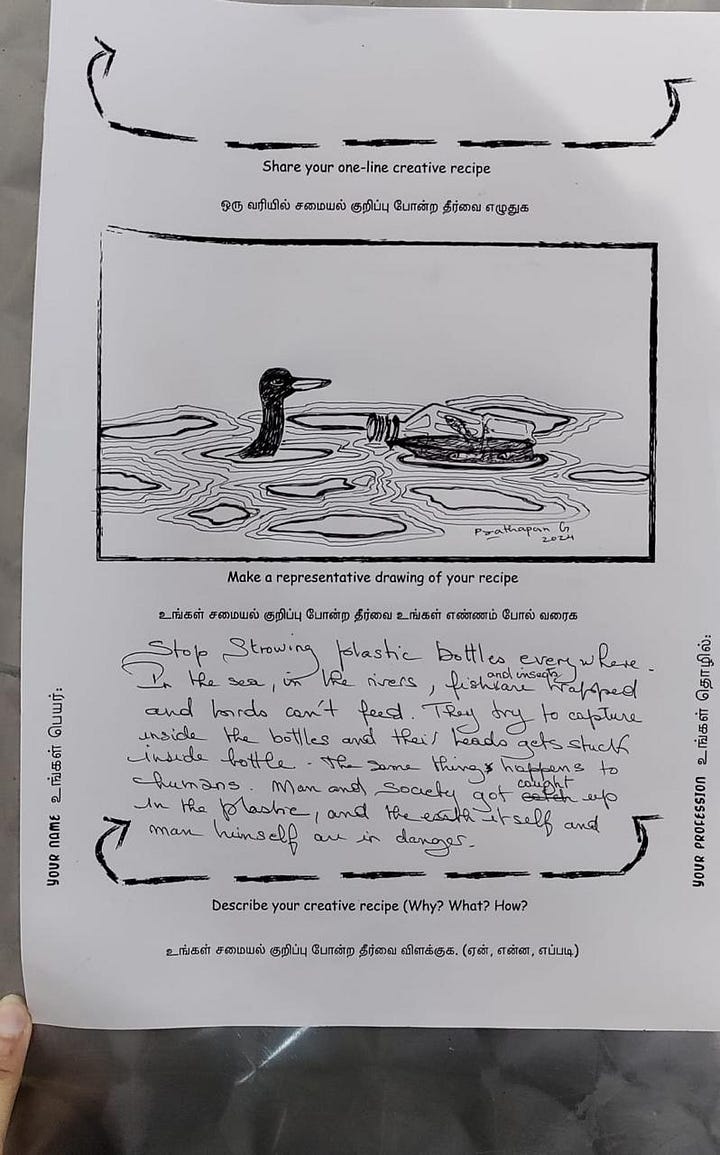 Share your one-line creative recipe
ஒரு வரியில் சமையல் குறிப்பு போன்ற தீர்வை எழுதுக
Prathapan G
2024
Make a representative drawing of your recipe
உங்கள் சமையல் குறிப்பு போன்ற தீர்வை உங்கள் எண்ணம் போல் வரைக
Stop Strowing plastic bottles everywhere.
In the sea, in the rivers, fishes and insects are trapped
and birds can't feed. They try to capture
inside the bottles and their heads gets stuck
inside bottle. The same things happens to
humans. Man and society got caught up
in the plastic, and the earth itself and
man himself are in danger.
Describe your creative recipe (Why? What? How?
உங்கள் சமையல் குறிப்பு போன்ற தீர்வை விளக்குக. (ஏன், என்ன, எப்படி)
YOUR NAME உங்கள் பெயர்:
YOUR PROFESSION உங்கள் தொழில்: